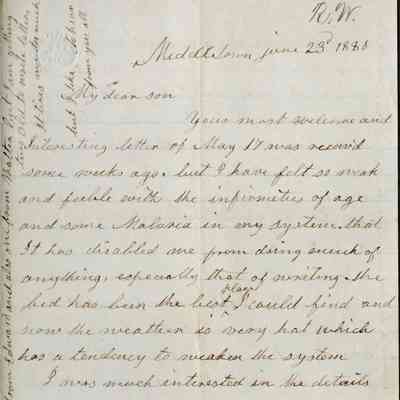 R.W.
Middletown, june 23d 1880
My dear son
Your most welcome and
Interesting letter of May 17 was received
some weeks ago. but I have felt so weak
and feeble with the infirmities of age
and some Malaria in my system that
It has disabled me from doing much of
anything, especially that of writing. the
bed has been the best place I could find and
now the weather is very hot which
has a tendency to weaken the system
I was much interested in the details
from Edward and also one from
but I like to hear
from you all